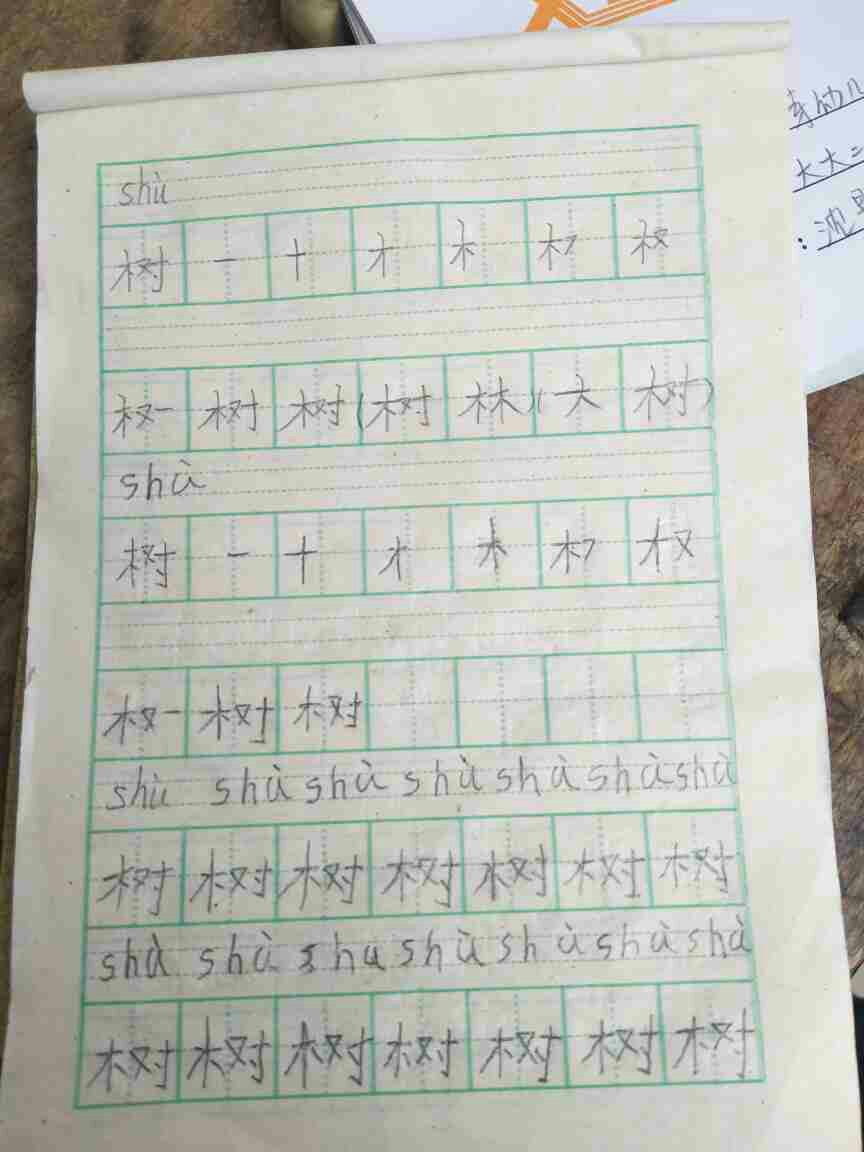 shù
树 一 十 才 木 权
shù
树 树 (树 林)(大 树)
树 一 十 才 木 权
树 树
shù shù shù shù shù shù shù
树 树 树 树 树 树 树
shù shù shu shù shù shù shù
树 树 树 树 树 树 树